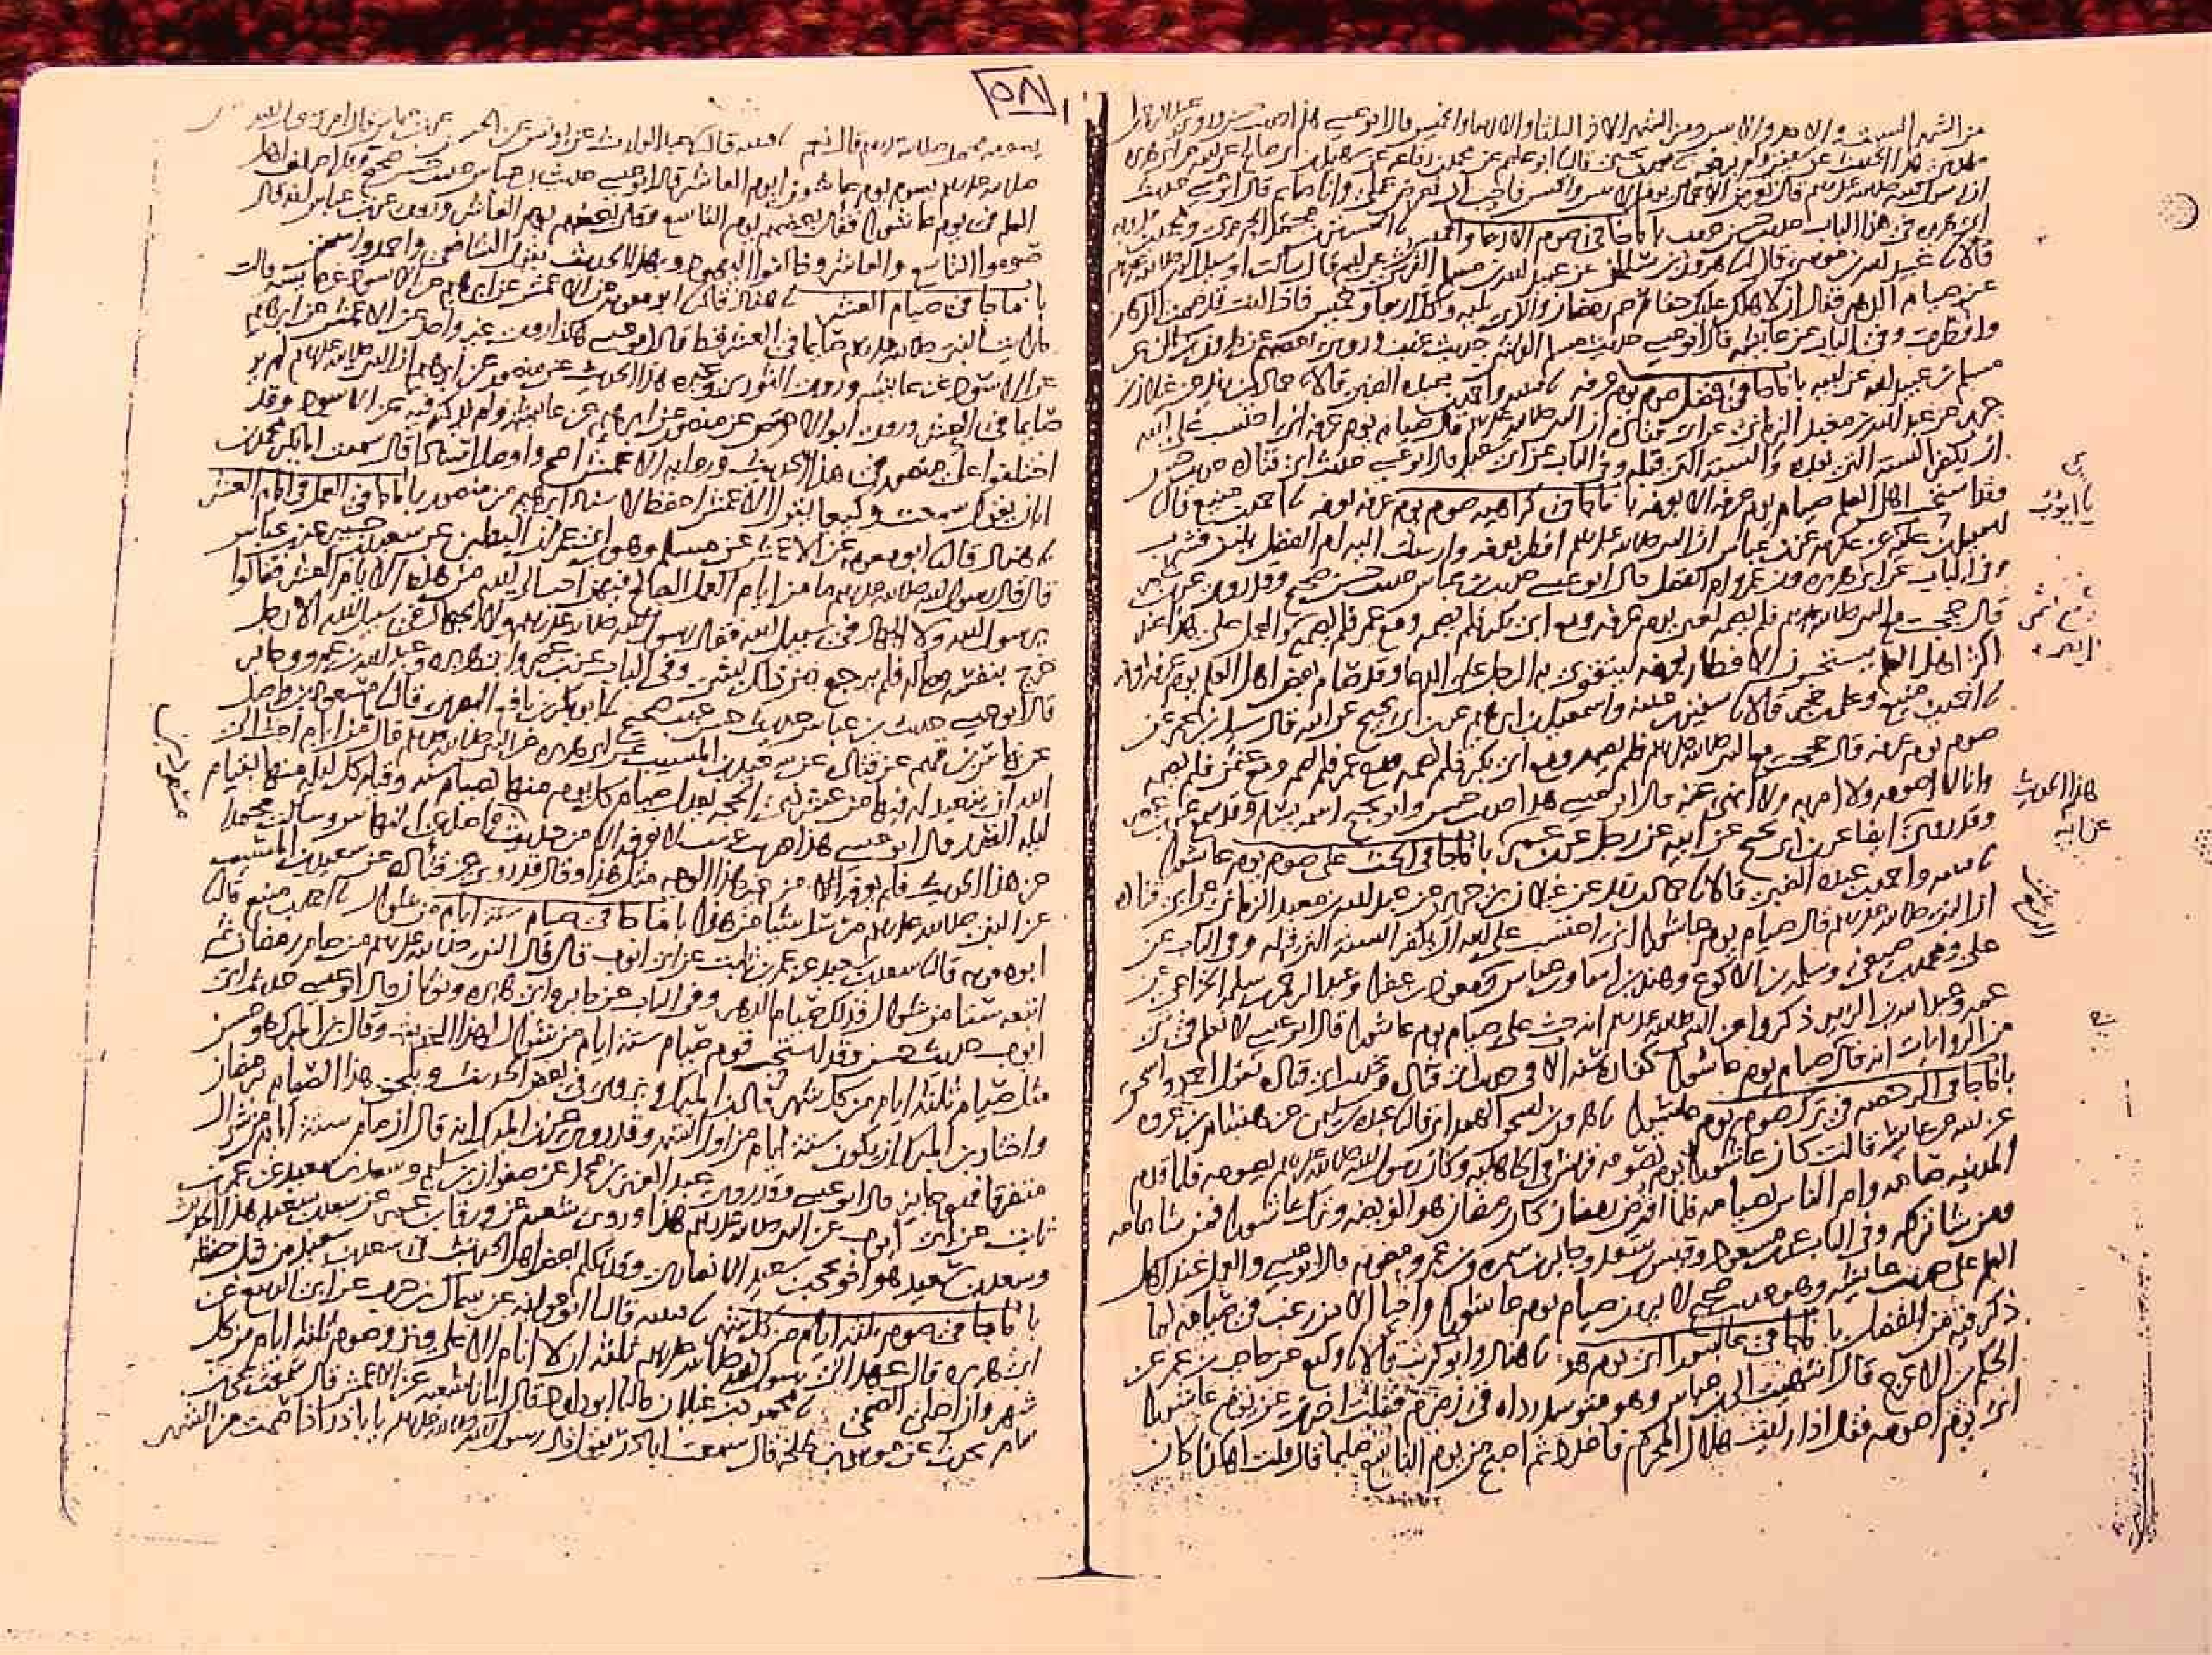 ٥٨
من الشهر السبت والاحد والاثنين ومن الشهر الاخر الثلثا والاربعا والخميس قال ابو عيسى هذا حديث حسن وروى عبد الرحمن
هذا الحديث عن سفين ولم يرفعه محمد بن يحيى قال ابو عاصم عن محمد بن رفاعه عن سهيل بن ابي صالح عن ابيه عن ابي هريره
ان رسول الله صلى الله عليه وسلم قال تعرض الاعمال يوم الاثنين والخميس فاحب ان يعرض عملي وانا صايم قال ابو عيسى حديث
ابي هريره في هذا الباب حديث حسن غريب باب ما جا في صوم الاربعا والخميس الحسين بن محمد الجريري ومحمد بن مدويه
قالا عبيد الله بن موسى قال هرون بن سلمان عن عبيد الله بن مسلم القرشي عن ابيه قال سالت او سيل النبي صلى الله عليه وسلم
عن صيام الدهر فقال ان لاهلك عليك حقا ثم صم رمضان والذي يليه وكل اربعا وخميس فاذا انت قد صمت الدهر
وافطرت وفي الباب عن عايشه قال ابو عيسى حديث مسلم القرشي حديث غريب وروى بعضهم عن هرون بن سلمان عن
مسلم بن عبيد الله عن ابيه باب ما جا في فضل صوم يوم عرفه قتيبه واحمد بن عبده الضبي قالا حماد بن زيد عن غيلان بن
جرير عن عبد الله بن معبد الزماني عن ابي قتاده ان النبي صلى الله عليه وسلم قال صيام يوم عرفه اني احتسب على الله
ان يكفر السنه التي بعده والسنه التي قبله وفي الباب عن ابي سعيد قال ابو عيسى حديث ابي قتاده حديث حسن
وقد استحب اهل العلم صيام يوم عرفه الا بعرفه باب ما جا في كراهيه صوم يوم عرفه بعرفه احمد بن منيع قال
اسمعيل بن عليه عن عكرمه عن ابن عباس ان النبي صلى الله عليه وسلم افطر بعرفه وارسلت اليه ام الفضل بلبن فشرب
وفي الباب عن ابي هريره وابن عمر وام الفضل قال ابو عيسى حديث ابن عباس حديث حسن صحيح وقد روى عن ابن عمر
قال حججت مع النبي صلى الله عليه وسلم فلم يصمه يعني يوم عرفه ومع ابي بكر فلم يصمه ومع عمر فلم يصمه والعمل على هذا عند
اكثر اهل العلم يستحبون الافطار بعرفه ليتقوى به الرجل على الدعا وقد صام بعض اهل العلم يوم عرفه بعرفه
احمد بن منيع وعلي بن حجر قالا سفين بن عيينه واسمعيل بن ابرهيم عن ابن ابي نجيح عن ابيه قال سيل ابن عمر عن
صوم يوم عرفه قال حججت مع النبي صلى الله عليه وسلم فلم يصمه ومع ابي بكر فلم يصمه ومع عمر فلم يصمه ومع عثمن فلم يصمه
وانا لا اصومه ولا امر به ولا انهى عنه قال ابو عيسى هذا حديث حسن وابو نجيح اسمه يسار وقد سمع من ابن عمر
وقد روي ايضا عن ابن ابي نجيح عن ابيه عن رجل عن ابن عمر باب ما جا في الحث على صوم يوم عاشورا
قتيبه واحمد بن عبده الضبي قالا حماد بن زيد عن غيلان بن جرير عن عبد الله بن معبد الزماني عن ابي قتاده
ان النبي صلى الله عليه وسلم قال صيام يوم عاشورا اني احتسب على الله ان يكفر السنه التي قبله وفي الباب عن
علي ومحمد بن صيفي وسلمه بن الاكوع وهند بن اسما وابن عباس والربيع بنت معوذ بن عفرا وعبد الرحمن بن سلمه الخزاعي عن
عمه وعبد الله بن الزبير ذكروا عن النبي صلى الله عليه وسلم انه حث على صيام يوم عاشورا قال ابو عيسى لا نعلم في شي
من الروايات انه قال صيام يوم عاشورا كفاره سنه الا في حديث ابي قتاده وبحديث ابي قتاده يقول احمد واسحق
باب ما جا في الرخصه في ترك صوم يوم عاشورا هرون بن اسحق الهمداني قال عبده بن سليمن عن هشام بن عروه
عن ابيه عن عايشه قالت كان عاشورا يوم تصومه قريش في الجاهليه وكان رسول الله صلى الله عليه وسلم يصومه فلما قدم
المدينه صامه وامر الناس بصيامه فلما افترض رمضان كان رمضان هو الفريضه وترك عاشورا فمن شا صامه
ومن شا تركه وفي الباب عن ابن مسعود وقيس بن سعد وجابر بن سمره وابن عمر ومعويه قال ابو عيسى والعمل عند اهل
العلم على حديث عايشه وهو حديث صحيح لا يرون صيام يوم عاشورا واجبا الا من رغب في صيامه لما
ذكر فيه من الفضل باب ما جا في عاشورا اي يوم هو هناد وابو كريب قالا وكيع عن حاجب بن عمر عن
الحكم بن الاعرج قال انتهيت الى ابن عباس وهو متوسد رداه في زمزم فقلت اخبرني عن يوم عاشورا
اي يوم اصومه فقال اذا رايت هلال المحرم فاعدد ثم اصبح من يوم التاسع صايما قال قلت اهكذا كان
يصومه محمد صلى الله عليه وسلم قال نعم قتيبه قال عبد الوارث عن يونس عن الحسن عن ابن عباس قال امر رسول الله
صلى الله عليه وسلم بصوم يوم عاشورا يوم العاشر قال ابو عيسى حديث ابن عباس حديث حسن صحيح وقد اختلف اهل
العلم في يوم عاشورا فقال بعضهم يوم التاسع وقال بعضهم يوم العاشر وروي عن ابن عباس انه قال
صوموا التاسع والعاشر وخالفوا اليهود وبهذا الحديث يقول الشافعي واحمد واسحق
باب ما جا في صيام العشر هناد قال ابو معويه عن الاعمش عن ابرهيم عن الاسود عن عايشه قالت
ما رايت النبي صلى الله عليه وسلم صايما في العشر قط قال ابو عيسى هكذا روى غير واحد عن الاعمش عن ابرهيم
عن الاسود عن عايشه وروى الثوري وغيره هذا الحديث عن منصور عن ابرهيم ان النبي صلى الله عليه وسلم لم ير
صايما في العشر وروى ابو الاحوص عن منصور عن ابرهيم عن عايشه ولم يذكر فيه عن الاسود وقد
اختلفوا على منصور في هذا الحديث وروايه الاعمش اصح واوصل اسنادا قال سمعت ابا بكر محمد بن
ابان يقول سمعت وكيعا يقول الاعمش احفظ لاسناد ابرهيم من منصور باب ما جا في العمل في ايام العشر
هناد قال ابو معويه عن الاعمش عن مسلم وهو ابن عمران البطين عن سعيد بن جبير عن ابن عباس
قال قال رسول الله صلى الله عليه وسلم ما من ايام العمل الصالح فيهن احب الى الله من هذه الايام العشر فقالوا
يرسول الله ولا الجهاد في سبيل الله فقال رسول الله صلى الله عليه وسلم ولا الجهاد في سبيل الله الا رجل
خرج بنفسه وماله فلم يرجع من ذلك بشي وفي الباب عن ابن عمر وابي هريره وعبد الله بن عمرو وجابر
قال ابو عيسى حديث ابن عباس حديث حسن غريب صحيح ابو بكر بن نافع البصري قال مسعود بن واصل
عن نهاس بن قهم عن قتاده عن سعيد بن المسيب عن ابي هريره عن النبي صلى الله عليه وسلم قال ما من ايام احب الى
الله ان يتعبد له فيها من عشر ذي الحجه يعدل صيام كل يوم منها بصيام سنه وقيام كل ليله منها بقيام
ليله القدر قال ابو عيسى هذا حديث غريب لا نعرفه الا من حديث مسعود بن واصل عن النهاس وسالت محمدا
عن هذا الحديث فلم يعرفه من غير هذا الوجه مثل هذا وقال قد روي عن قتاده عن سعيد بن المسيب
عن النبي صلى الله عليه وسلم مرسل شيا من هذا باب ما جا في صيام سته ايام من شوال احمد بن منيع قال
ابو معويه قال سعد بن سعيد عن عمر بن ثابت عن ابي ايوب قال قال النبي صلى الله عليه وسلم من صام رمضان ثم
اتبعه ستا من شوال فذلك صيام الدهر وفي الباب عن جابر وابي هريره وثوبان قال ابو عيسى حديث ابي
ايوب حديث حسن وقد استحب قوم صيام سته ايام من شوال لهذا الحديث وقال ابن المبارك هو حسن
مثل صيام ثلثه ايام من كل شهر قال ابن المبارك ويروى في بعض الحديث ويلحق هذا الصيام برمضان
واختار ابن المبارك ان يكون سته ايام من اول الشهر وقد روي عن ابن المبارك انه قال ان صام سته ايام من شوال
متفرقا فهو جايز قال ابو عيسى وقد روى عبد العزيز بن محمد عن صفوان بن سليم وسعد بن سعيد عن عمر بن
ثابت عن ابي ايوب عن النبي صلى الله عليه وسلم هذا وروى شعبه عن ورقا بن عمر عن سعد بن سعيد هذا الحديث
وسعد بن سعيد هو اخو يحيى بن سعيد الانصاري وقد تكلم بعض اهل الحديث في سعد بن سعيد من قبل حفظه
باب ما جا في صوم ثلثه ايام من كل شهر قتيبه قال ابو عوانه عن سماك بن حرب عن ابي الربيع عن
ابي هريره قال عهد الي رسول الله صلى الله عليه وسلم ثلثه ان لا انام الا على وتر وصوم ثلثه ايام من كل
شهر وان اصلي الضحى محمود بن غيلان قال ابو داود قال انبانا شعبه عن الاعمش قال سمعت يحيى بن
سام يحدث عن موسى بن طلحه قال سمعت ابا ذر يقول قال رسول الله صلى الله عليه وسلم يا با ذر اذا صمت من الشهر
هذا الحديث
عن ابيه